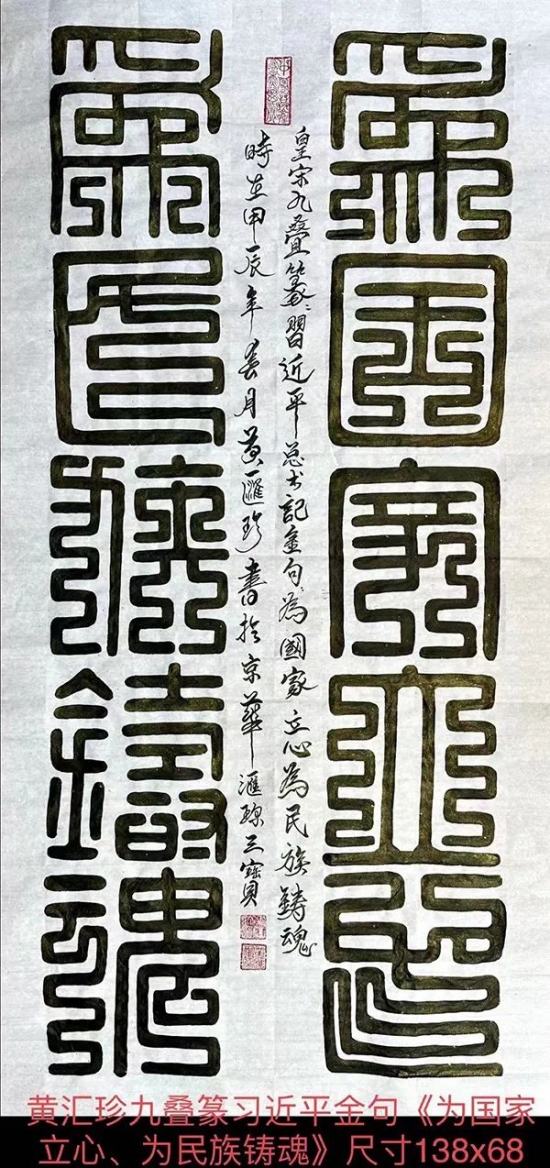 為國家立心
為民族鑄魂
皇宋九疊篆：習近平总书記金句：為國家立心為民族鑄魂
時在甲辰年春月黄匯珍書於京華滙珎三寶
黄汇珍九叠篆习近平金句《为国家
立心、为民族铸魂》尺寸138x68